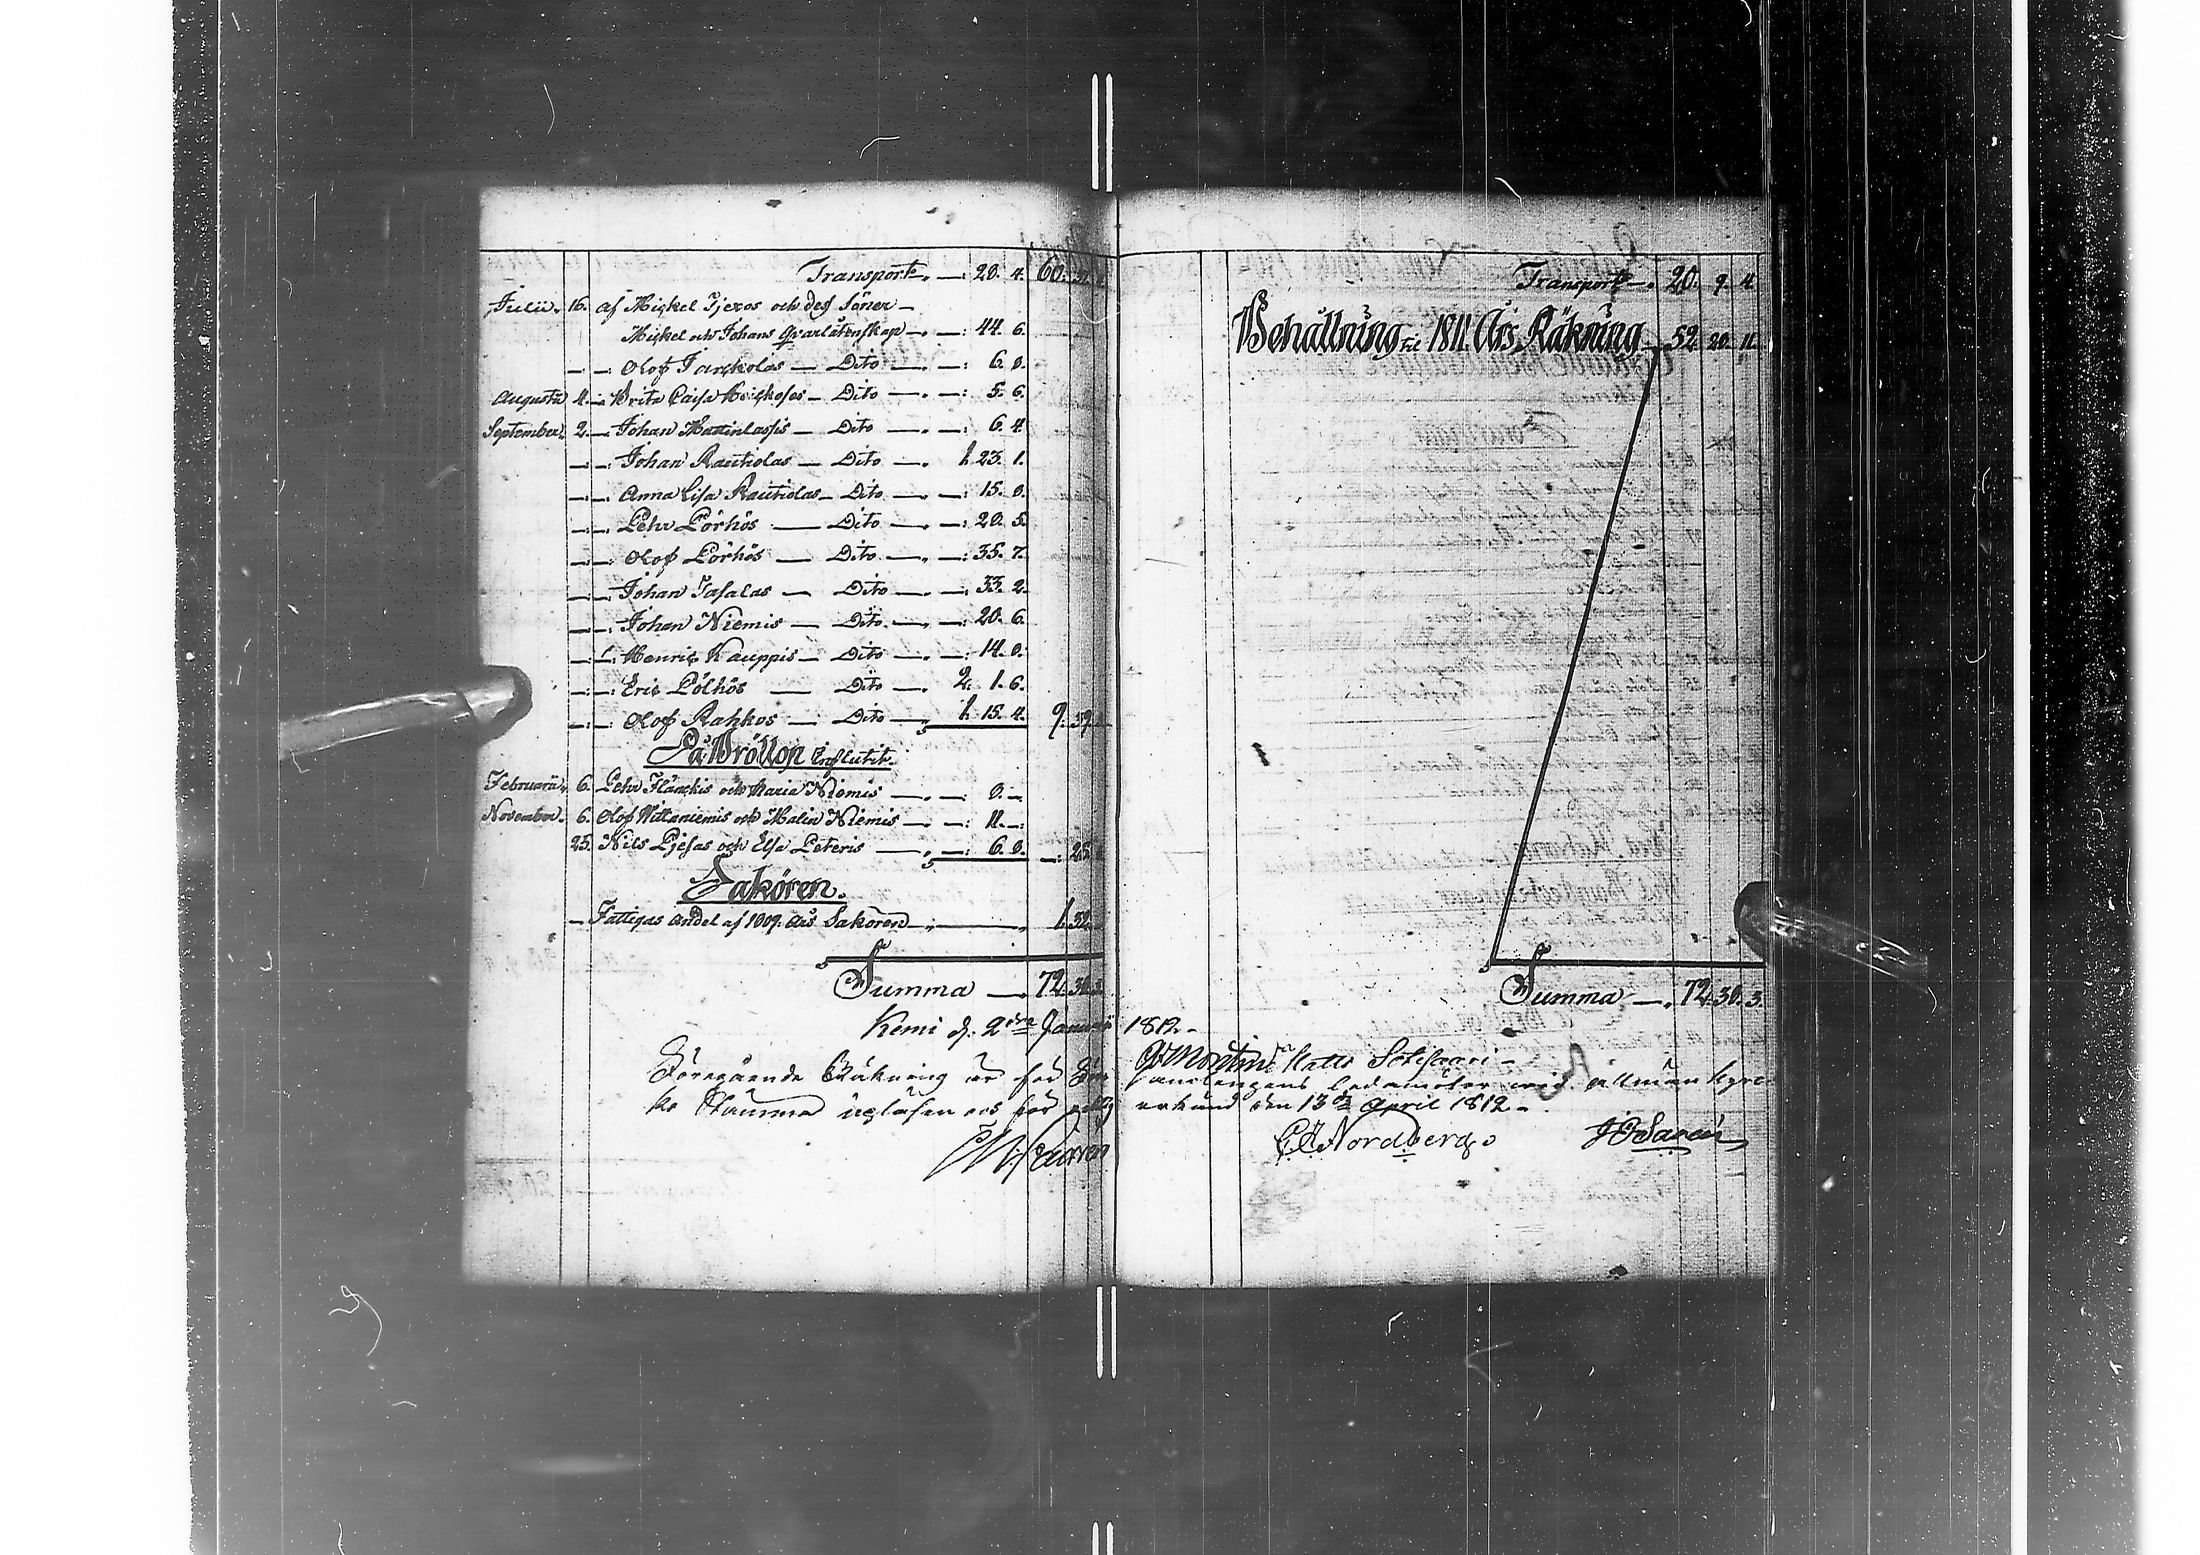 Transport — 20. 4. 60.
Julii. 16. af Mickel Tjeros och dess Söner —
Mickel och Johans Qvarlåtenskap — 44. 6.
Olof Jarckolas — Dito — 6. 0.
Augusti 4. Brita Caisa — Dito — 5. 6.
September. 2. Johan Mattinlassis — Dito — 6. 4.
Johan Rautiolas — Dito — 1. 23. 1.
Anna Lisa Rautiolas — Dito — 15. 0.
Pehr Pörhös — Dito — 20. 5.
Olof Pörhös — Dito — 35. 7.
Johan Jasalas — Dito — 33. 2.
Johan Niemis — Dito — 20. 6.
Henric Kauppis — Dito — 14. 0.
Eric Pölhös — Dito — 2. 1. 6.
Olof Rahkos — Dito — 1. 15. 4. 9. 39.
På Bröllop Influtit.
Februarii. 6. Pehr och Maria Niemis — 0. —
November. 6. Olof Wittaniemis och Malin Niemis — 11. —
25. Nils Pjesas och Elsa Peteris — 6. 0. 25.
Sakören.
Fattigas Andel af 1809. års Sakören — 1. 32.
Summa — 72. 30. 3.
Kemi d. 2dra Januarii 1812 —
Föregående Räkning är för
ke Stämma upläsen och för
Transport — 20. 9. 4.
Behållning til 1811 Års Räkning — 52. 20. 11.
Summa — 72. 30. 3.
Matts
ledamöter wid allmän Kyrc
erkänd den 13de April 1812 —
Nordberg